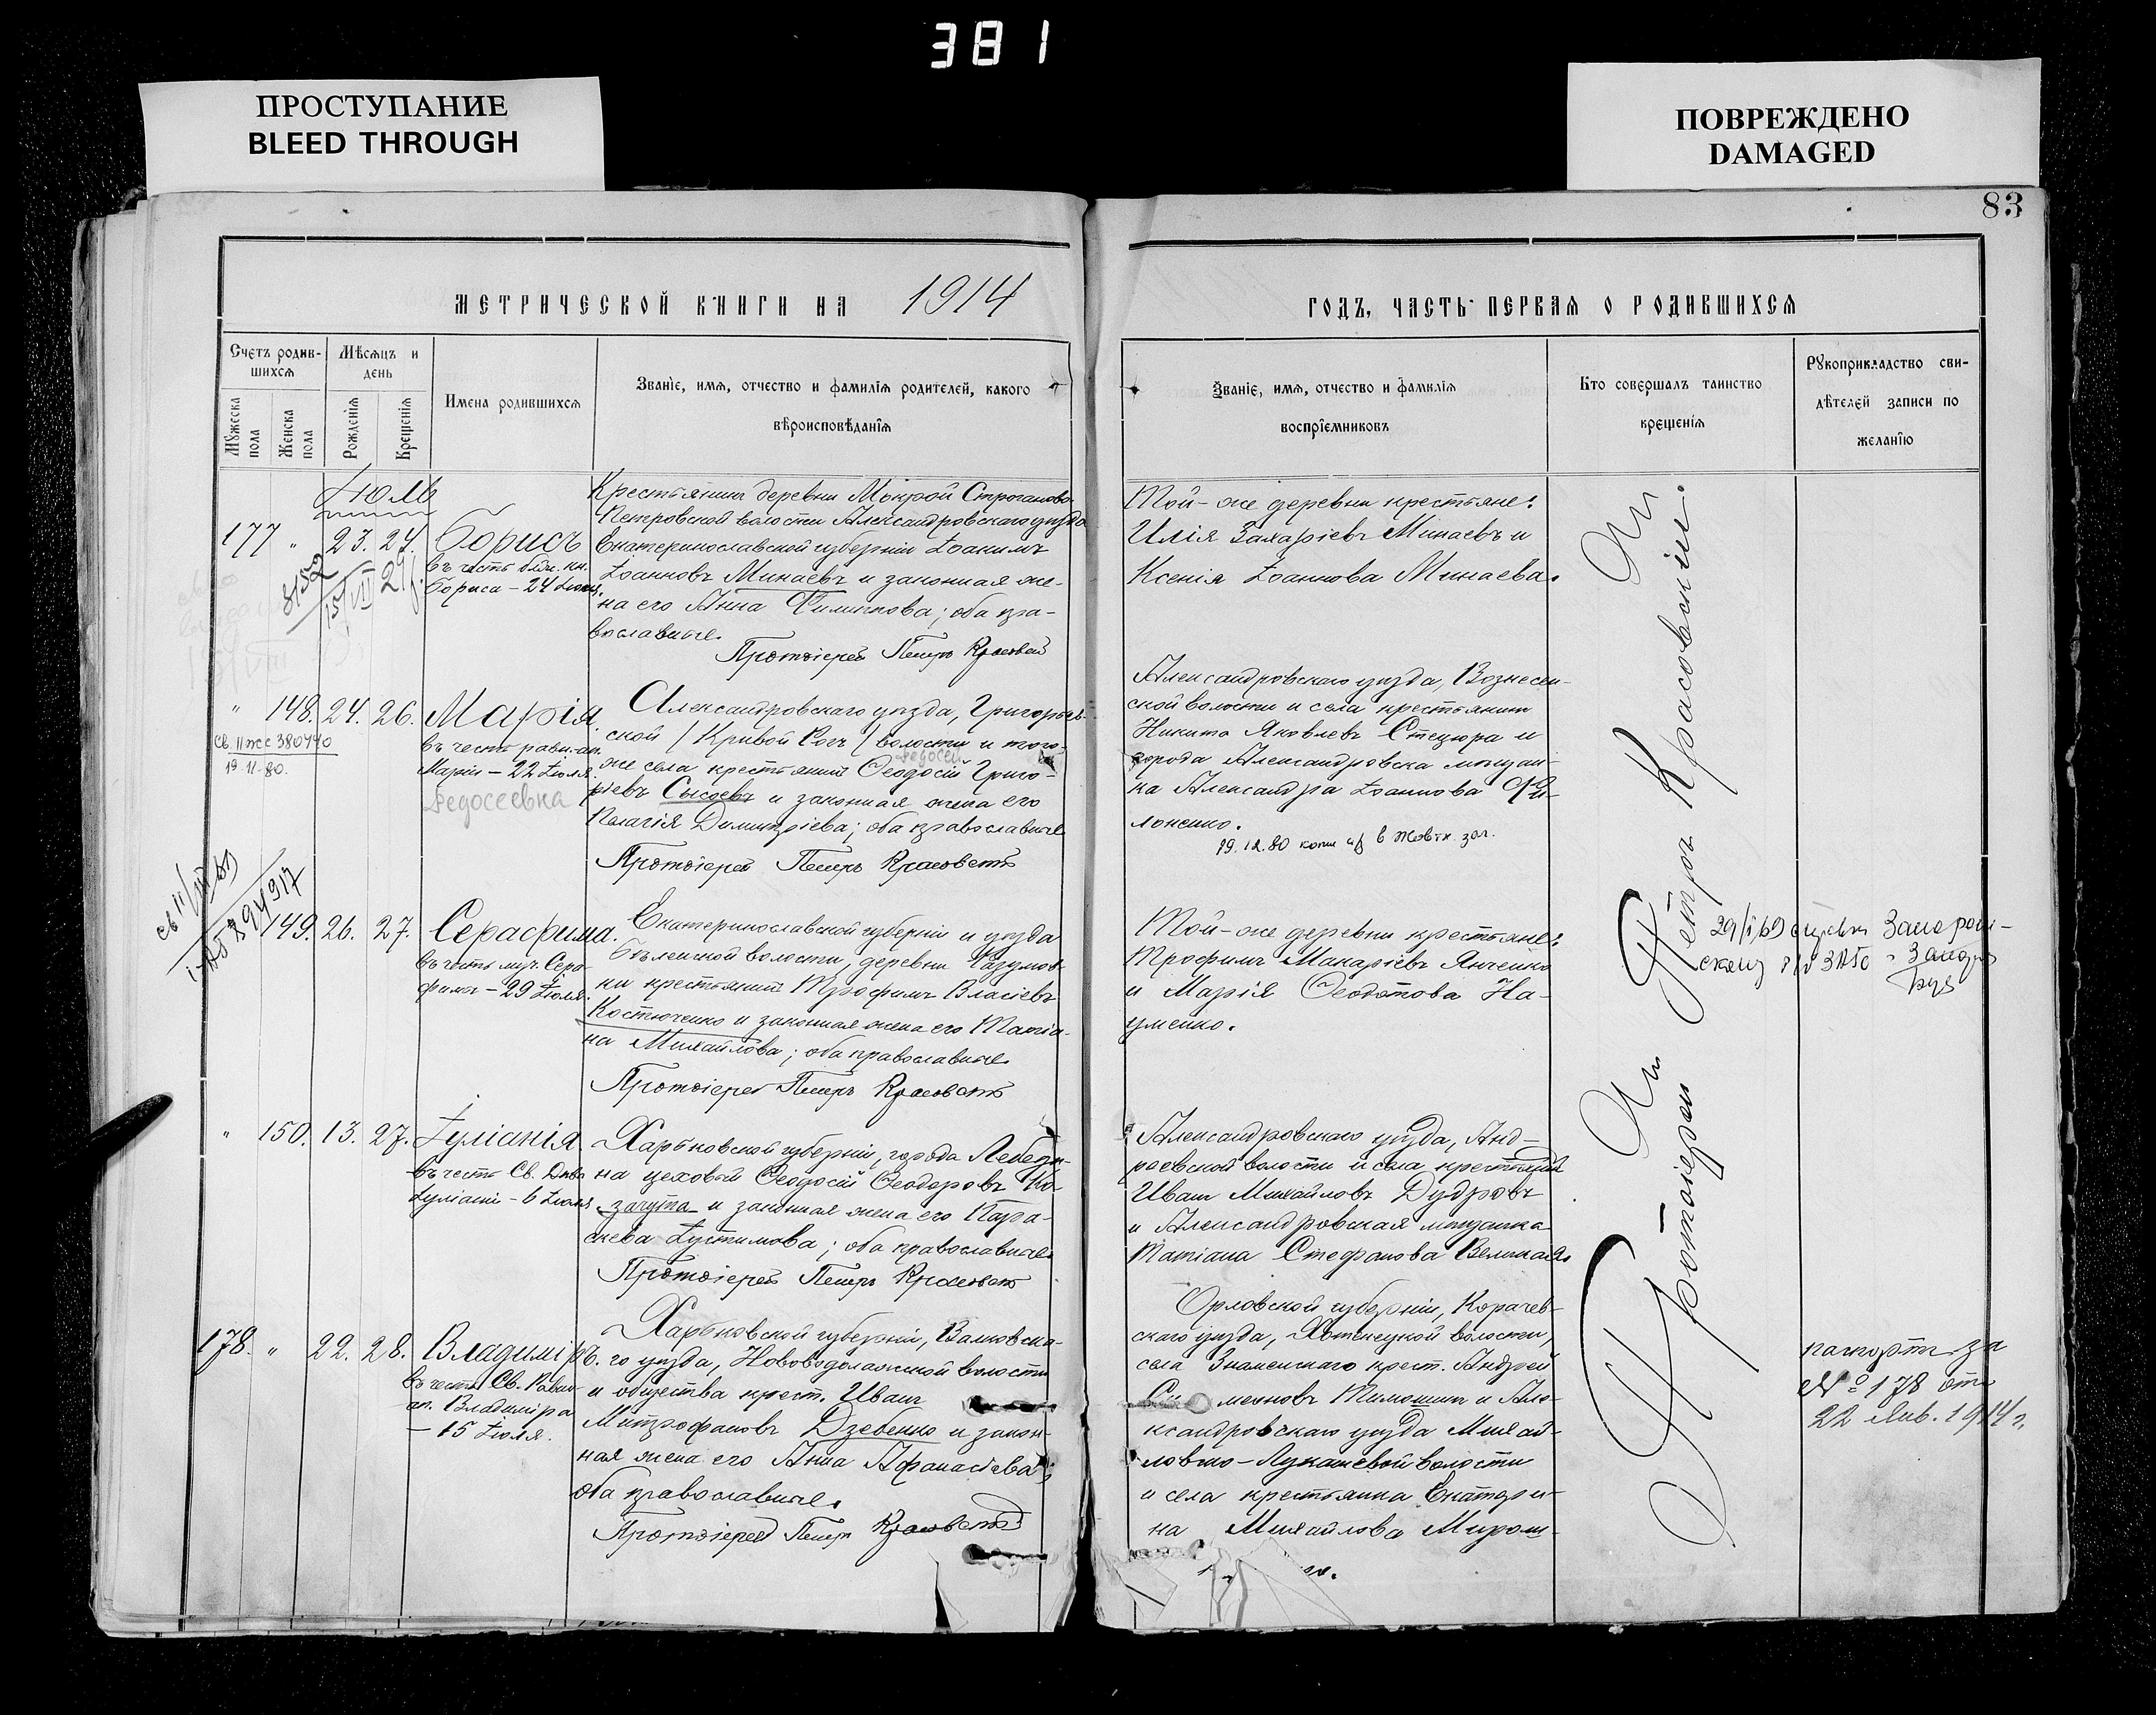 381
ПРОСТУПАНИЕ
BLEED THROUGH
ПОВРЕЖДЕНО
DAMAGED
83
МЕТРИЧЕСКОЙ КНИГИ НА 1914
ГОДЪ, ЧАСТЬ ПЕРВАЯ О РОДИВШИХСЯ
Счетъ родив-
шихся
Мужеска
пола
Женска
пола
Мѣсяцъ и
день
Рожденія
Крещенія
Имена родившихся
Званіе, имя, отчество и фамилія родителей, какого
вѣроисповѣданія
Званіе, имя, отчество и фамилія
воспріемниковъ
Кто совершалъ таинство
крещенія
Рукоприкладство сви-
дѣтелей записи по
желанію
Іюль
177 " 23. 24. Борисъ
въ честь блг. кн.
Бориса - 24 Іюля.
Крестьянинъ деревни Мокрой Строганово-
Петровской волости Александровскаго уѣзда
Екатеринославской губерніи Іоакимъ
Іоанновъ Минаевъ и законная же-
на его Анна Филиппова; оба пра-
вославные.
Протоіерей Петръ Красовскій
Той-же деревни крестьяне:
Илія Захаріевъ Минаевъ и
Ксенія Іоаннова Минаева.
" 148. 24. 26. Марія
въ честь равн. ап.
Маріи - 22 Іюля.
Федосеевна
св. II жс 380440
19-11-80.
Александровскаго уѣзда, Григорьев-
ской /Кривой Рогъ/ волости и того-
же села крестьянинъ Ѳеодосій Григо-
Федосей
ріевъ Сысоевъ и законная жена его
Пелагія Димитріева; оба православные
Протоіерей Петръ Красовскій
Александровскаго уѣзда, Вознесен-
ской волости и села крестьянинъ
Никита Яковлевъ Стецюра и
города Александровска мѣщан-
ка Александра Іоаннова Фи-
лоненко.
149. 26. 27. Серафима.
въ честь муч. Сера-
фимы - 29 Іюля.
Екатеринославской губерніи и уѣзда
Бѣленской волости, деревни Разумов-
ки крестьянинъ Трофимъ Власіевъ
Костюченко и законная жена его Татіа-
на Михайлова; оба православные
Протоіерей Петръ Красовскій
Той-же деревни крестьяне:
Трофимъ Макаріевъ Янченко
и Марія Ѳеодотова На-
уменко.
" 150. 13. 27. Іуліанія.
въ честь Св. Дѣвы
Іуліаніи - 6 Іюля
Харьковской губерніи, города Лебеди-
на цеховый Ѳеодосій Ѳеодоровъ Ко-
зачута и законная жена его Пара-
скева Іустимова; оба православные
Протоіерей Петръ Красовскій
Александровскаго уѣзда, Анд-
реевской волости и села крестьянинъ
Иванъ Михайловъ Дудровъ
и Александровская мѣщанка
Татіана Стефанова Великая.
178. " 22. 28. Владиміръ.
въ честь Св. Равно-
ап. Владиміра
- 15 Іюля.
Харьковской губерніи, Валковска-
го уѣзда, Нововодолажской волости
и общества крест. Иванъ
Митрофановъ Дзевенко и закон-
ная жена его Анна Афанасіева;
оба православные.
Протоіерей Петръ Красовскій
Орловской губерніи, Карачев-
скаго уѣзда, Хотенецкой волости,
села Знаменскаго крест. Андрей
меоновъ Тимошинъ и Але-
ксандровскаго уѣзда Михай-
ловско-Лукашевой волости
и села крестьянка Екатери-
на Михайлова Мирош-
Протоіерей Петръ Красовскій.
паспортъ за
№ 178 отъ
22 Янв. 1914 г.